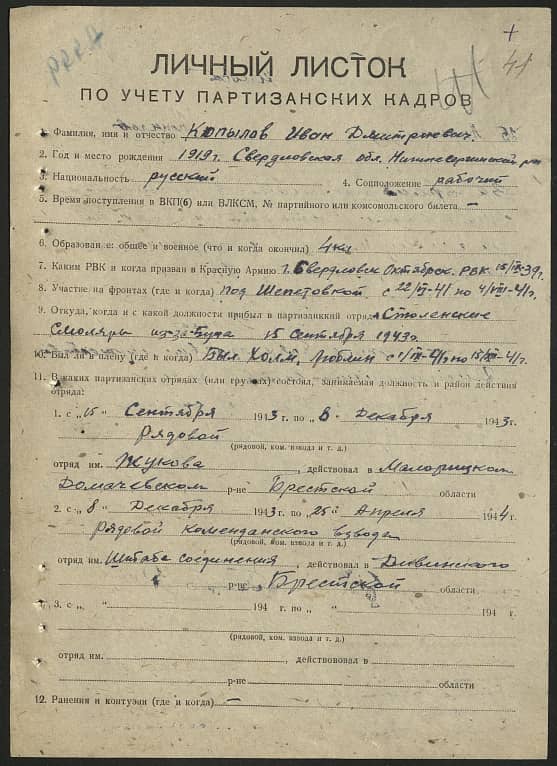 +
41
ЛИЧНЫЙ ЛИСТОК
ПО УЧЕТУ ПАРТИЗАНСКИХ КАДРОВ
1. Фамилия, имя и отчество Кюпылов Иван Дмитриевич.
2. Год и место рождения 1919г. Свердловская обл. Нижнесергинский р-н
3. Национальность русский 4. Соцположение рабочий
5. Время поступления в ВКП(б) или ВЛКСМ, № партийного или комсомольского билета –
6. Образование: общее и военное (что и когда окончил) 4 кл.
7. Каким РВК и когда призван в Красную Армию г. Свердловск Октябрск. РВК 15/IX-39г.
8. Участие на фронтах (где и когда) под Шепетовкой с 22/VI-41 по 4/VIII-41г.
9. Откуда, когда и с какой должности прибыл в партизанский отряд
Смоляры 15 Сентября 1943г.
10. Был ли в плену (где и когда) Был. Холм, Люблин с по 41г.
11. В каких партизанских отрядах (или группах) состоял, занимаемая должность и район действия
отряда:
1. с „15“ Сентября 1943 г. по „8“ Декабря 1943г.
рядовой
(рядовой, ком. взвода и т. д.)
отряд им. Жукова, действовал в Малоритском
Домачевском р-не Брестской области
2. с „8“ Декабря 1943 г. по „25“ Апреля 1944г.
рядовой комендансого взвода
(рядовой, ком. взвода и т. д.)
отряд им. Штаба соединения, действовал в Дивинского
р-не Брестской области
3. с „ “ 194 г. по „ “ 194 г.
(рядовой, ком. взвода и т. д.)
отряд им. , действововал в
р-не области
12. Ранения и контузии (где и когда) –